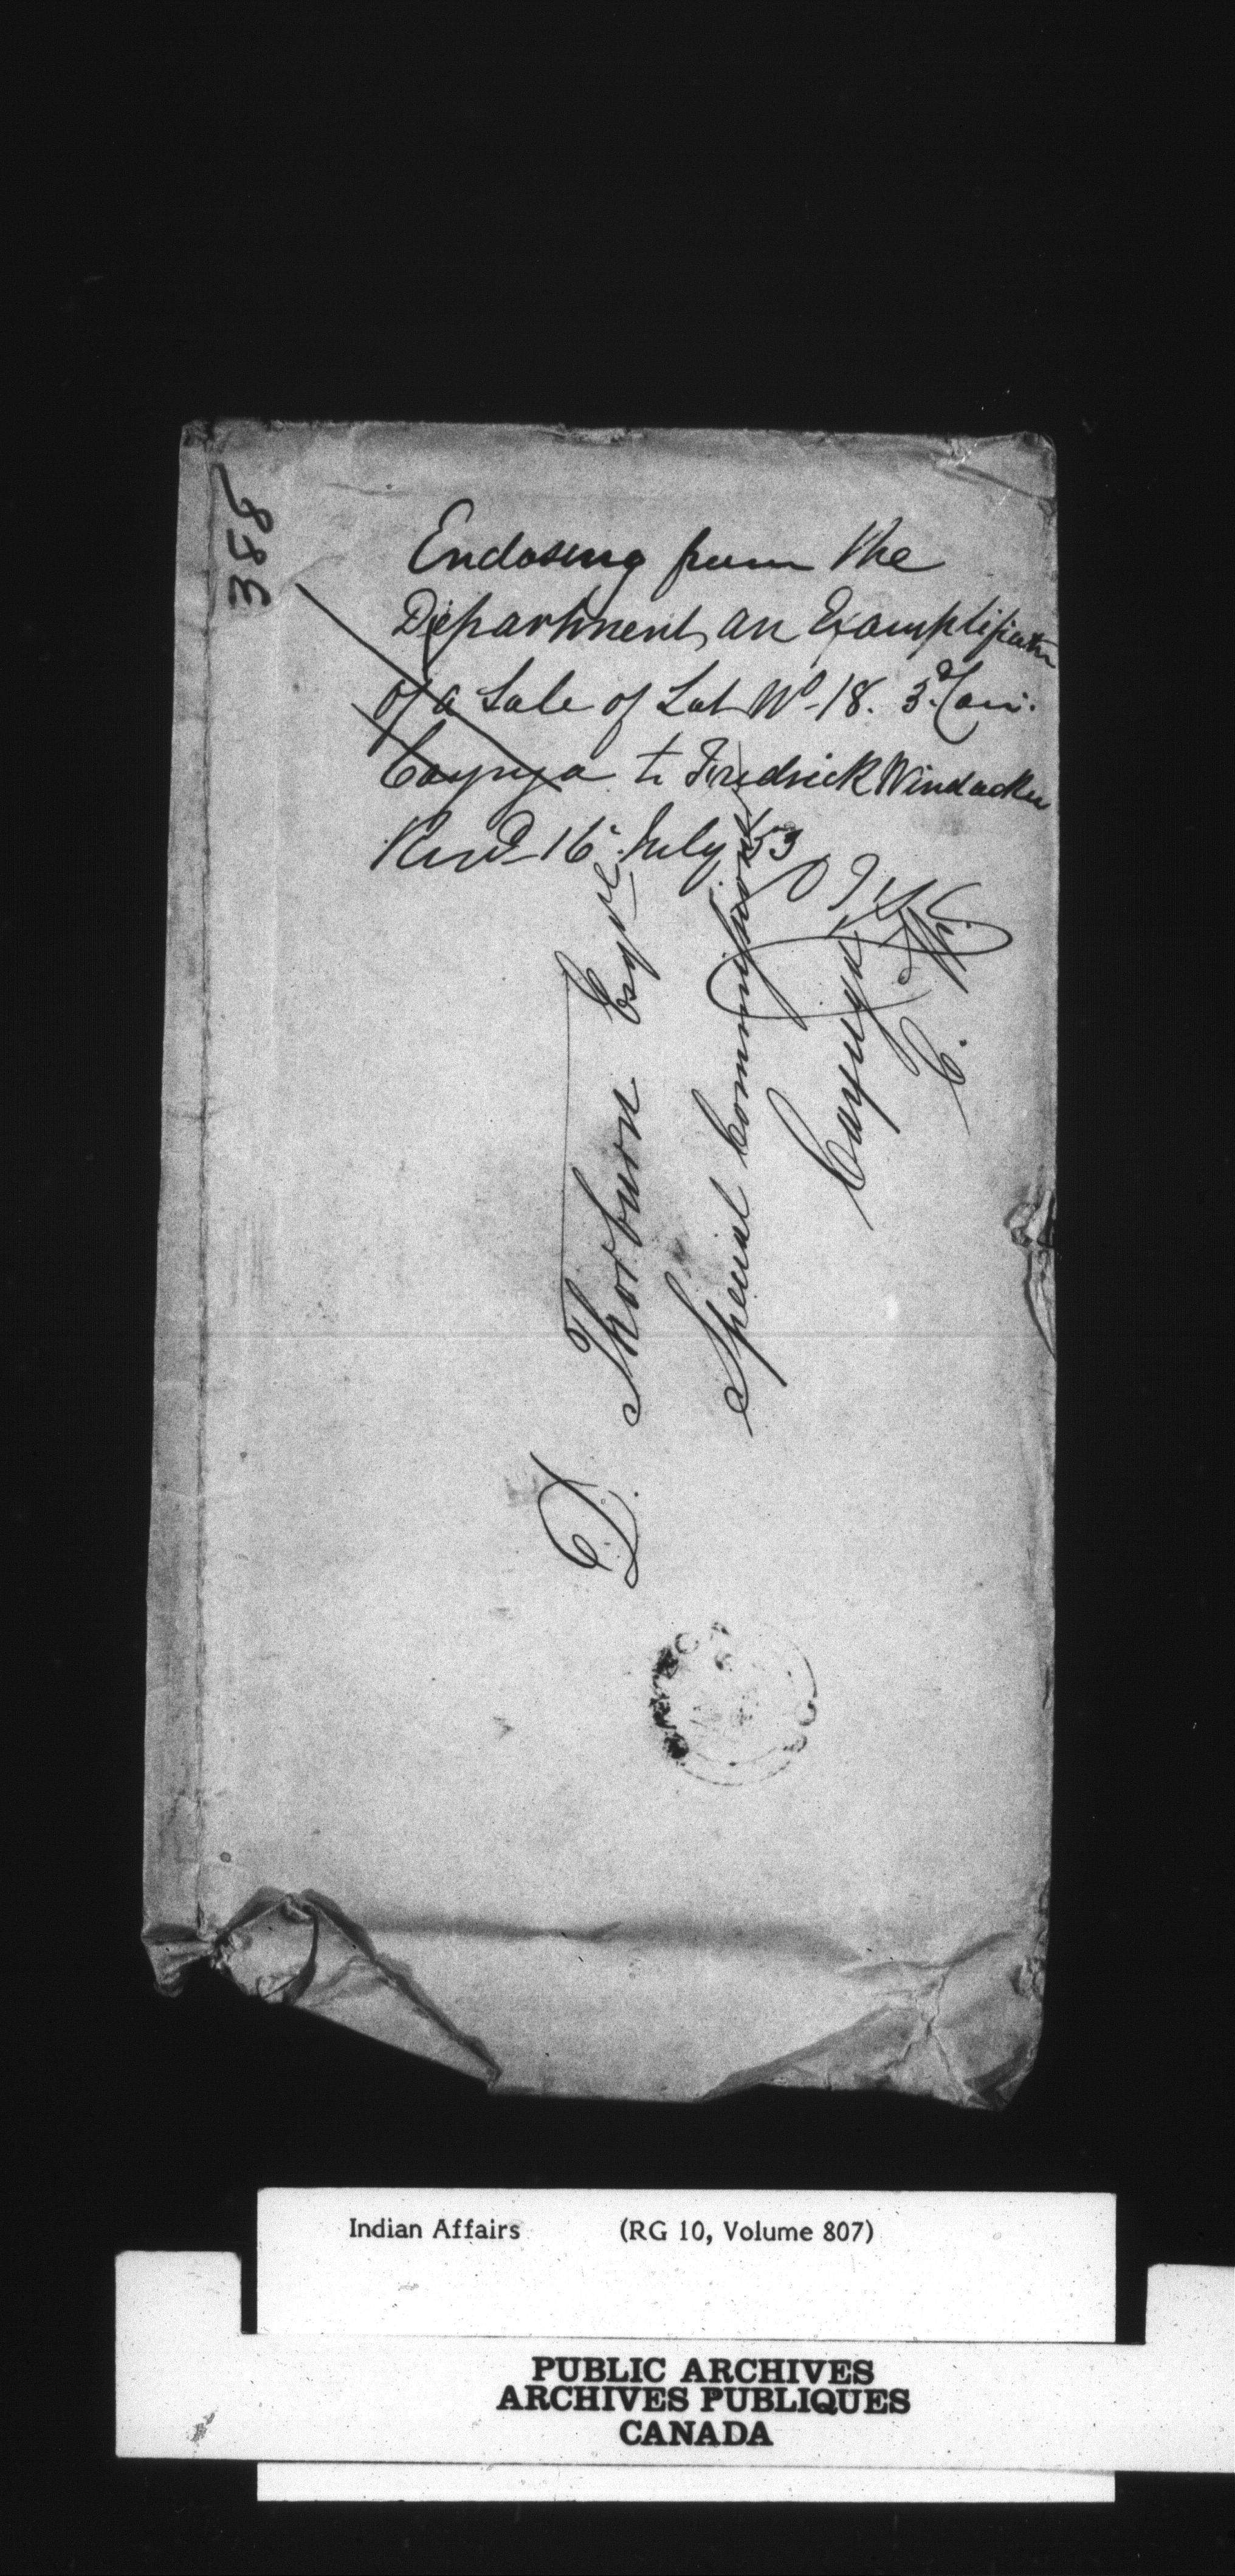 388
Enclosing from the
Department, an Examplification
of a Sale of Lot No 18. 3d Con.
Cayuga to Fredrick Windacker
Recd 16 July /53
D. Thorburn Esqre
Special Commissioner
Cayuga
C. W.
Indian Affairs (RG 10, Volume 807)
PUBLIC ARCHIVES
ARCHIVES PUBLIQUES
CANADA